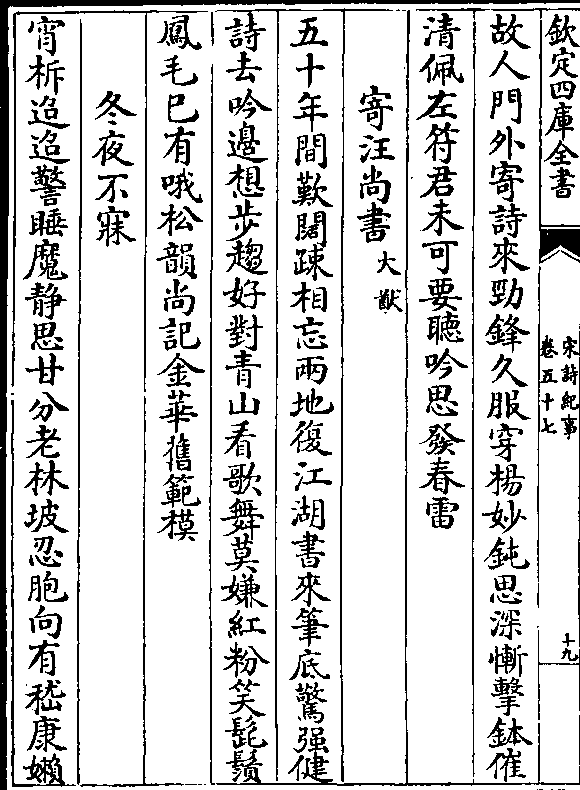 欽定四庫全書
宋詩紀事
卷五十七
十九
故人門外寄詩來勁鋒久服穿楊妙鈍思深慚擊鉢催
清佩左符君未可要聽吟思發春雷
寄汪尚書大猷
五十年間歎闊疎相忘兩地復江湖書來筆底驚强健
詩去吟邊想步趨好對青山看歌舞莫嫌紅粉笑髭鬚
鳳毛已有哦松韻尚記金華舊範模
冬夜不寐
宵柝迢迢警睡魔静思甘分老林坡忍胞向有嵇康嬾